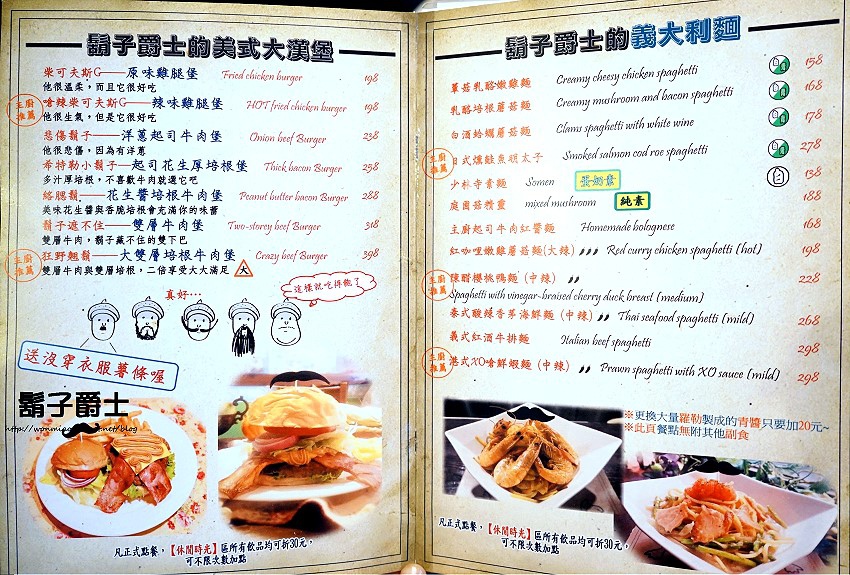 鬍子爵士的美式大漢堡
柴可夫斯G——原味雞腿堡 Fried chicken burger 198
他很溫柔，而且它很好吃
主廚推薦
嗆辣柴可夫斯G——辣味雞腿堡 HOT fried chicken burger 198
他很生氣，但是它很好吃
悲傷鬍子——洋蔥起司牛肉堡 Onion beef Burger 238
他很悲傷，因為有洋蔥
希特勒小鬍子—起司花生厚培根堡 Thick bacon Burger 258
多汁厚培根，不喜歡牛肉就選它吧
絡腮鬍——花生醬培根牛肉堡 Peanut butter bacon Burger 288
美味花生醬與香脆培根會充滿你的味蕾
鬍子遮不住——雙層牛肉堡 Two-storey beef Burger 318
雙層牛肉，鬍子藏不住的雙下巴
主廚推薦
狂野翹鬍——大雙層培根牛肉堡 Crazy beef Burger 398
雙層牛肉與雙層培根，二倍享受大大滿足 大
真好…
這樣就吃得飽了
送沒穿衣服薯條喔
鬍子爵士
凡正式點餐，【休閒時光】區所有飲品均可折30元，
可不限次數加點
鬍子爵士的義大利麵
蕈菇乳酪嫩雞麵 Creamy cheesy chicken spaghetti 158
乳酪培根蘑菇麵 Creamy mushroom and bacon spaghetti 168
白酒蛤蠣蘑菇麵 Clams spaghetti with white wine 178
主廚推薦
日式燻鮭魚明太子 Smoked salmon cod roe spaghetti 278
少林寺素麵 Somen 蛋奶素 138
庭園菇精靈 mixed mushroom 純素 188
主廚起司牛肉紅醬麵 Homemade bolognese 168
紅咖哩嫩雞蘑菇麵(大辣) Red curry chicken spaghetti (hot) 198
主廚推薦
陳醋櫻桃鴨麵 (中辣) 228
Spaghetti with vinegar-braised cherry duck breast (medium)
泰式酸辣香茅海鮮麵 (中辣) Thai seafood spaghetti (mild) 268
義式紅酒牛排麵 Italian beef spaghetti 298
主廚推薦
港式XO嗆鮮蝦麵 (中辣) Prawn spaghetti with XO sauce (mild) 298
※更換大量羅勒製成的青醬只要加20元~
※此頁餐點無附其他副食
凡正式點餐，【休閒時光】區所有飲品均可折30元，
可不限次數加點